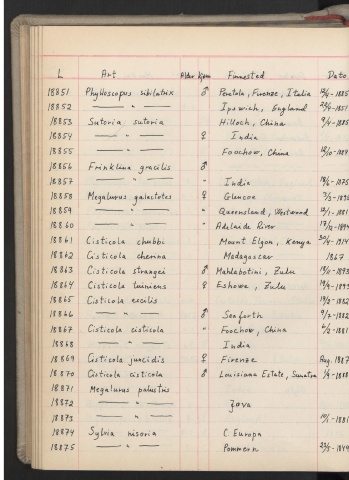 L Art Alder Kjønn Finnested Dato
18851 Phylloscopus sibilatrix ♂ Pestola, Firenze, Italia 1885
18852 — " — Ipswich, England 1851
18853 Sutoria sutoria Hilloch, China 9/4-1885
18854 — " — ♀ India
18855 — " — Foochow, China 12/10-1884
18856 Franklina gracilis ♂
18857 — " — " India 1875
18858 Megalurus galactotes ♀ Glencoe 7/3-1895
18859 — " — " Queensland, Westwood 12/1-1881
18860 — " — " Adelaide River 17/12-1894
18861 Cisticola chubbi Mount Elgon, Kenya 30/4-1914
18862 Cisticola cherina Madagascar 1867
18863 Cisticola strangei ♂ Mahlabatini, Zulu 1893
18864 Cisticola tinniens ♀ Eshowe, Zulu 19/4-1893
18865 Cisticola exilis 19/2-1882
18866 — " — ♂ Seaforth 9/2-1882
18867 Cisticola cisticola " Foochow, China 6/2-1881
18868 — " — India
18869 Cisticola juncidis ♀ Firenze Aug. 1887
18870 Cisticola cisticola ♂ Louisiana Estate, Sumatra 1/9-1888
18871 Megalurus palustris
18872 — " — Java
18873 — " — 1881
18874 Sylvia nisoria C. Europa
18875 — " — Pommern 1849